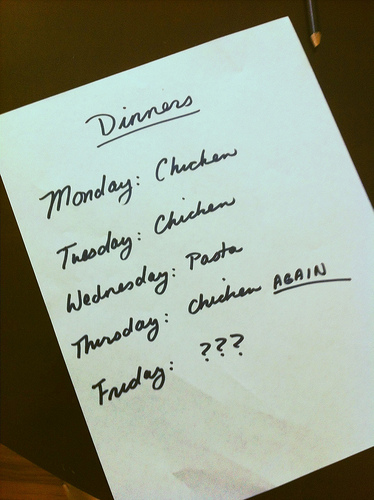 Dinners
Monday: Chicken
Tuesday: Chicken
Wednesday: Pasta
Thursday: chicken AGAIN
Friday: ???